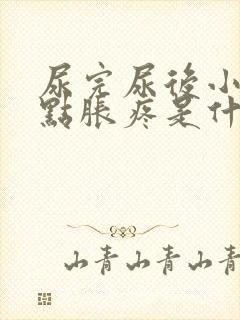 尿完尿後小
點脹疼是什
山青山青山青